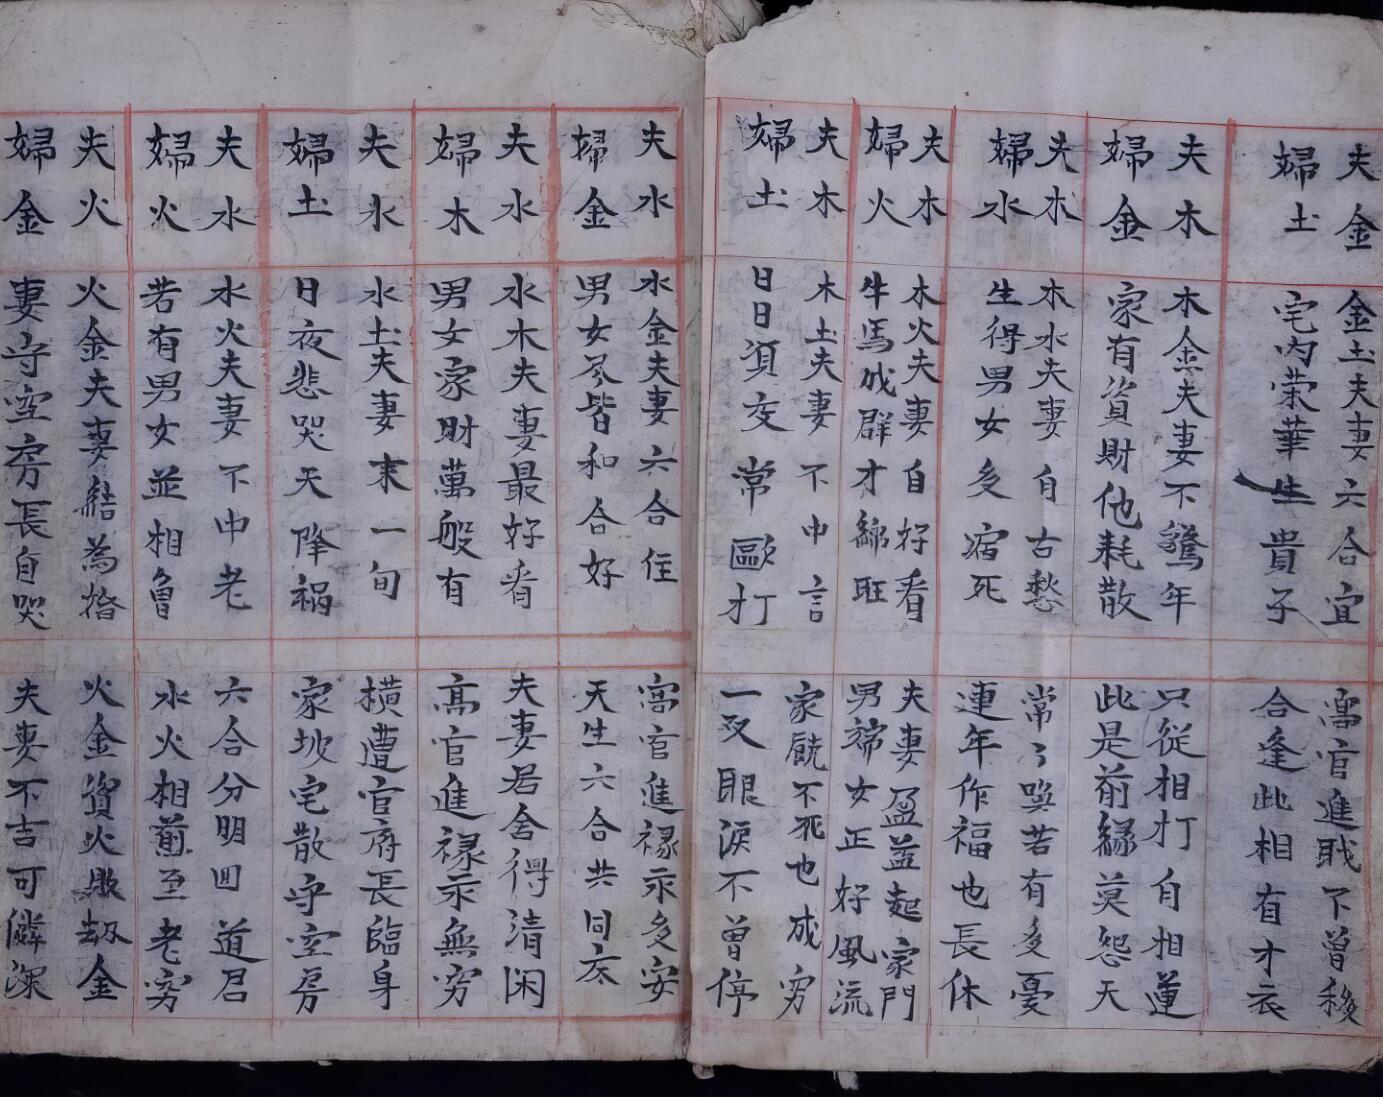 夫金
婦土
金土夫妻六合宜
宅內荣華生貴子
高官進戝不曽移
合逢此相有才衣
夫木
婦金
木金夫妻不驁年
家有資財他耗散
只從相打自相連
此是前緣莫怨天
夫木
婦水
木水夫妻自古愁
生得男女多病死
常々喚若有多憂
連年作福也長休
夫木
婦火
木火夫妻自好看
牛馬成群才綿旺
夫妻盈益起家門
男端女正好風流
夫木
婦土
木土夫妻不中言
日日須交常毆打
家饒不死也成穷
一双眼淚不曾停
夫水
婦金
水金夫妻六合住
男女皆和合好
高官進祿永多安
天生六合共同衣
夫水
婦木
水木夫妻最好看
男女家財萬般有
夫妻居舍得清闲
高官進祿永無穷
夫水
婦土
水土夫妻末一旬
日夜悲哭天降禍
横遭官府長臨身
家坡宅散守空房
夫水
婦火
水火夫妻不中老
若有男女並相魯
六合分明回道君
水火相煎至老穷
夫火
婦金
火金夫妻結為婚
妻守空房長自哭
火金資火燉刼金
夫妻不吉可憐深